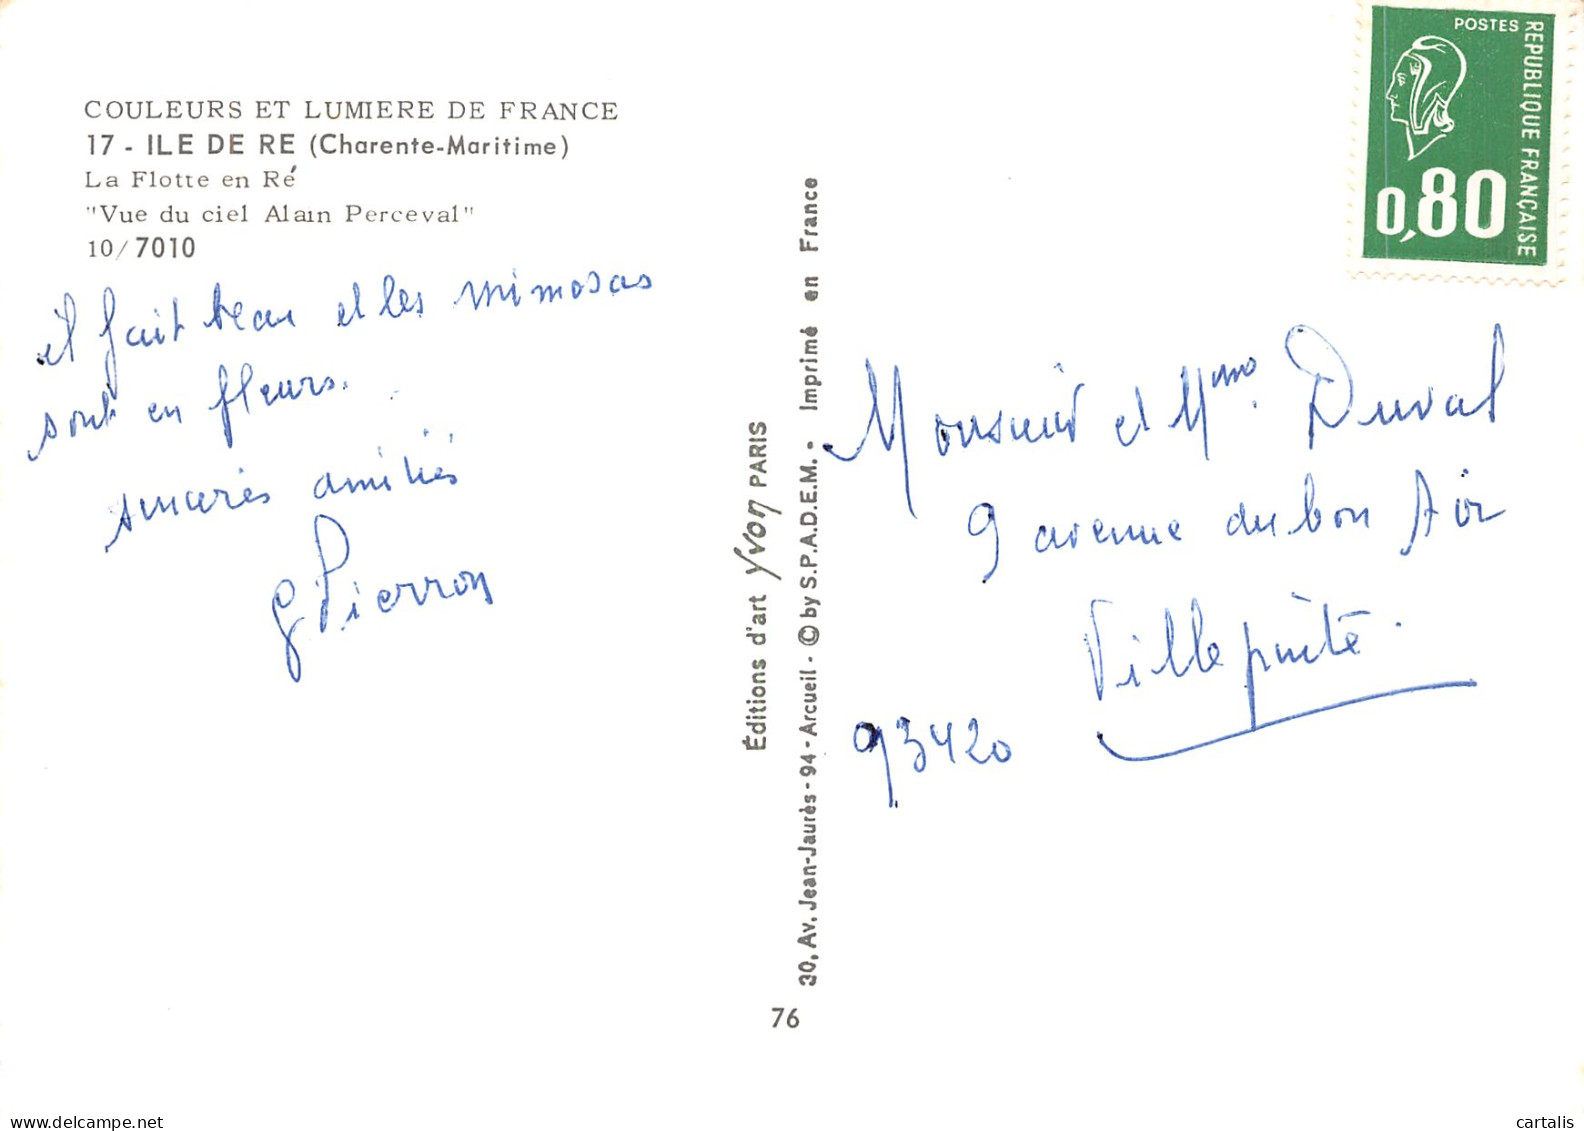 COULEURS ET LUMIERE DE FRANCE
17 - ILE DE RE (Charente-Maritime)
La Flotte en Ré
"Vue du ciel Alain Perceval"
10/7010
il fait beau et les mimosas
sont en fleurs.
sincères amitiés
G Pierron
Éditions d'art Yvon PARIS
30, Av. Jean-Jaurès - 94 - Arcueil - © by S.P.A.D.E.M. - Imprimé en France
76
POSTES
REPUBLIQUE FRANÇAISE
0,80
Monsieur et Mme. Duval
9 avenue du bon Air
Villepinte.
93420
www.delcampe.net
cartalis